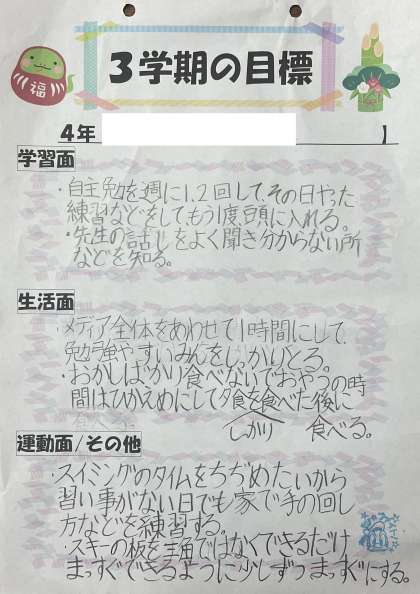 福
3学期の目標
4年
】
学習面
・自主勉を週に1,2回して、その日やった
練習などをしてもう1度頭に入れる。
・先生の話しをよく聞き分からない所
などを知る。
生活面
メディア全体をあわせて1時間にして、
勉強やすいみんをしっかりとる。
・おかしばかり食べないでおやつの時
間はひかえめにして夕食を食べた後に
しっかり 食べる。
運動面/その他
・スイミングのタイムをちぢめたいから
習い事がない日でも家で手の回し
方などを練習する。
・スキーの板を三角ではなくできるだけ
まっすぐできるように少しずつまっすぐにする。